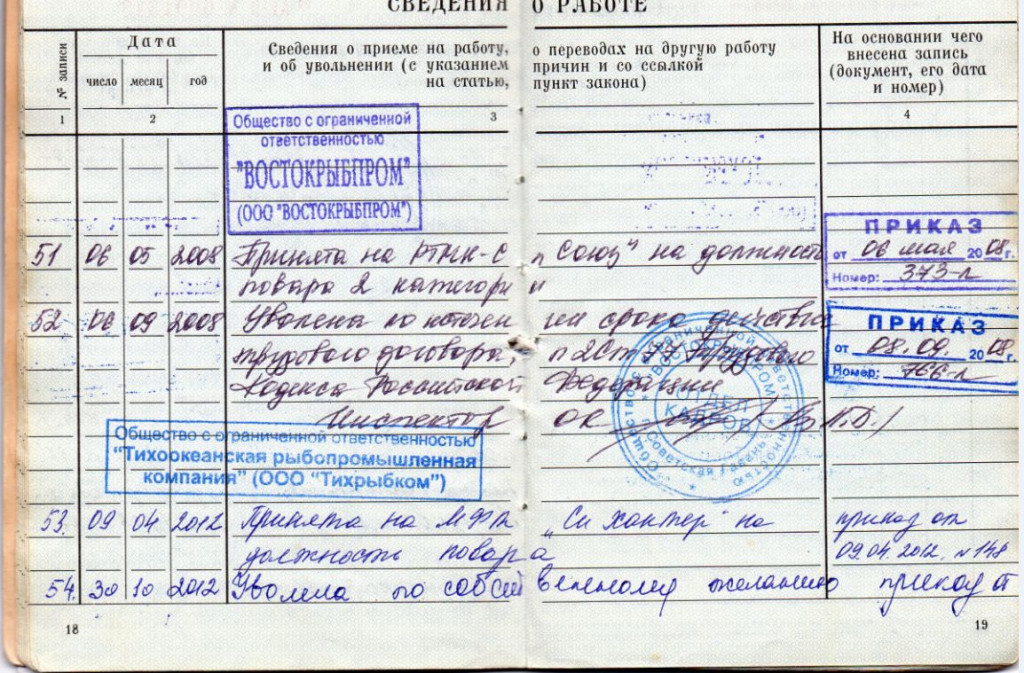 СВЕДЕНИЯ О РАБОТЕ
№ записи
Дата
число месяц год
Сведения о приеме на работу, о переводах на другую работу
и об увольнении (с указанием причин и со ссылкой
на статью, пункт закона)
На основании чего
внесена запись
(документ, его дата
и номер)
1 2 3 4
Общество с ограниченной
ответственностью
"ВОСТОКРЫБПРОМ"
(ООО "ВОСТОКРЫБПРОМ")
51 06 05 2008 Принята на РТМК-С „Союз" на должность
повара 2 категории
ПРИКАЗ
от 06 мая 2008 г.
Номер: 373-л
52 08 09 2008 Уволена по истечении срока действия
трудового договора, п 2 ст 77 Трудового
Кодекса Российской Федерации
Инспектор ОК
ПРИКАЗ
от 08.09. 2008 г.
Номер: 766-л
ОТДЕЛ
КАДРОВ
Общество с ограниченной ответственностью
"Тихоокеанская рыбопромышленная
компания" (ООО "Тихрыбком")
53. 09 04 2012 Принята на „Си Хантер" на приказ от
должность повара 09.04.2012. N 148
54. 30 10 2012 Уволена по собственному желанию приказ от
18 19